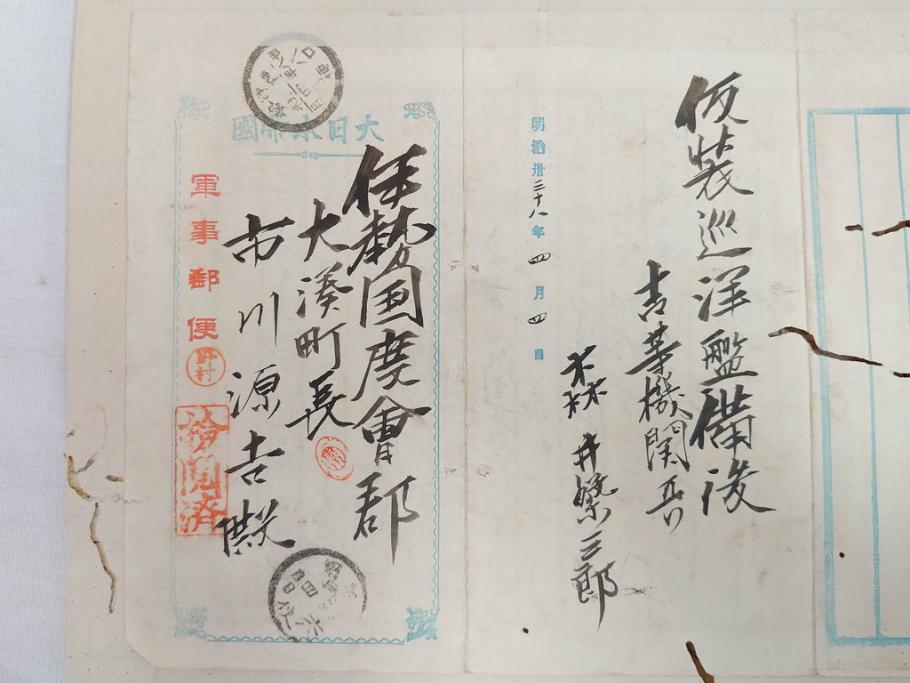 仮装巡洋艦備後
一等機関兵
森井榮三郎
明治卅三十八年四月四日
大日本帝國
伊勢国度會郡
大湊町長
市川源吉殿
軍事郵便
野村
検閲済